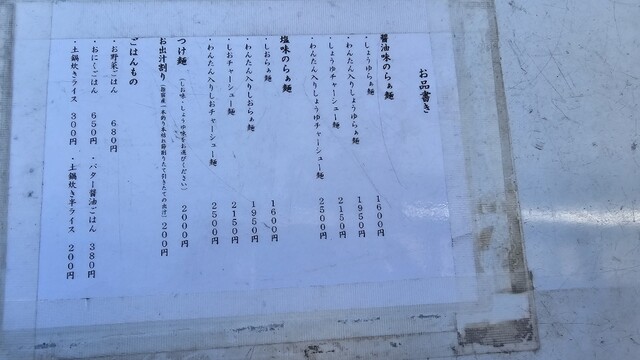 お品書き
醤油味のらぁ麺
・しょうゆらぁ麺 1600円
・わんたん入りしょうゆらぁ麺 1950円
・しょうゆチャーシュー麺 2150円
・わんたん入りしょうゆチャーシュー麺 2500円
塩味のらぁ麺
・しおらぁ麺 1600円
・わんたん入りしおらぁ麺 1950円
・しおチャーシュー麺 2150円
・わんたん入りしおチャーシュー麺 2500円
つけ麺 (しお味・しょうゆ味をお選びください) 2000円
お出汁割り (指宿産一本釣り本枯れ節削りたて引きたての出汁) 200円
ごはんもの
・お野菜ごはん 680円
・おにくごはん 650円 ・バター醤油ごはん 380円
・土鍋炊きライス 300円 ・土鍋炊き半ライス 200円